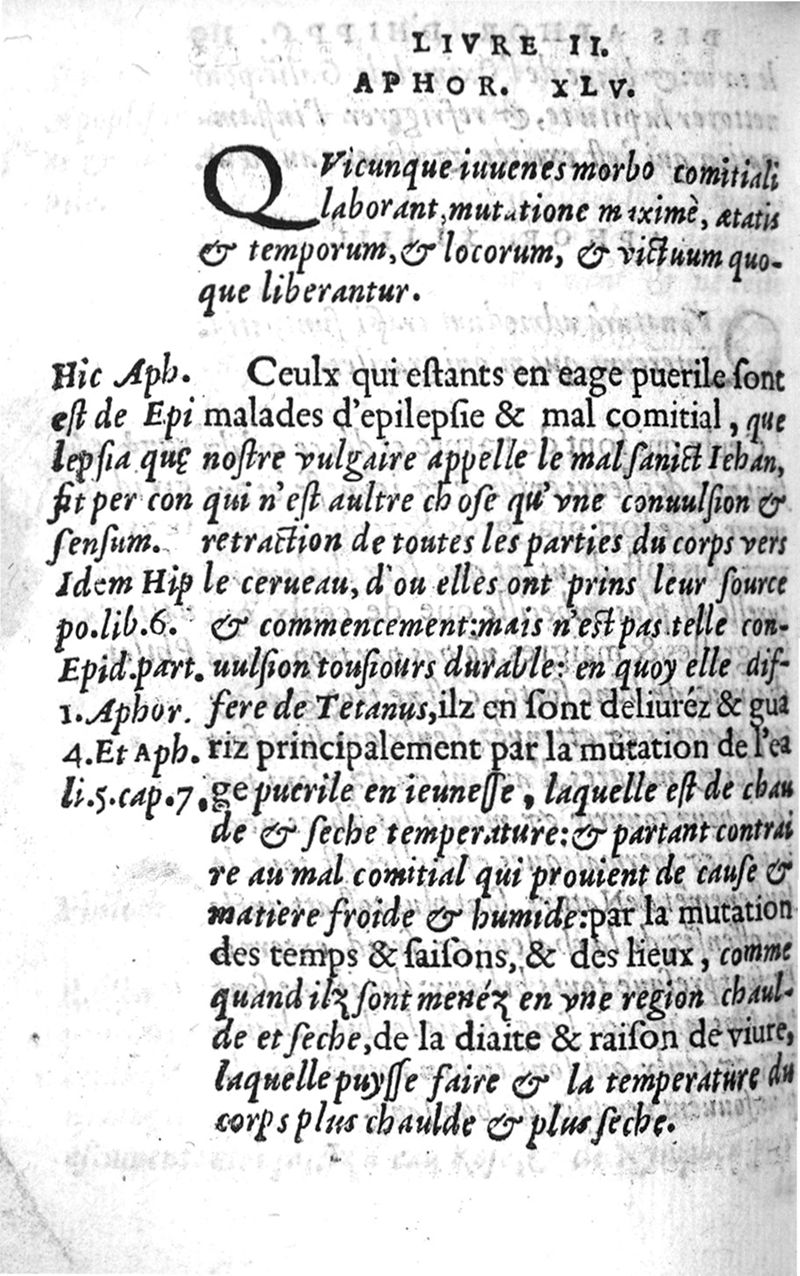 LIVRE II.
APHOR. XLV.
QVicunque iuuenes morbo comitiali
laborant, mutatione maximè, ætatis
& temporum, & locorum, & victuum quo-
que liberantur.
Hic Aph.
est de Epi
lepsia quę
fit per con
sensum.
Idem Hip
po. lib. 6.
Epid. part.
1. Aphor.
4. Et Aph.
li. 5. cap. 7.
Ceulx qui estants en eage puerile sont
malades d'epilepsie & mal comitial, que
nostre vulgaire appelle le mal sanict Iehan,
qui n'est aultre chose qu'vne conuulsion &
retraction de toutes les parties du corps vers
le cerueau, d'ou elles ont prins leur source
& commencement: mais n'est pas telle con-
uulsion tousiours durable: en quoy elle dif-
fere de Tetanus, ilz en sont deliuréz & gua
riz principalement par la mutation de l'ea
ge puerile en ieunesse, laquelle est de chau
de & seche temperature: & partant contrai
re au mal comitial qui prouient de cause &
matiere froide & humide: par la mutation
des temps & saisons, & des lieux, comme
quand ilz sont menéz en vne region chaul-
de et seche, de la diaite & raison de viure,
laquelle puysse faire & la temperature du
corps plus chaulde & plus seche.